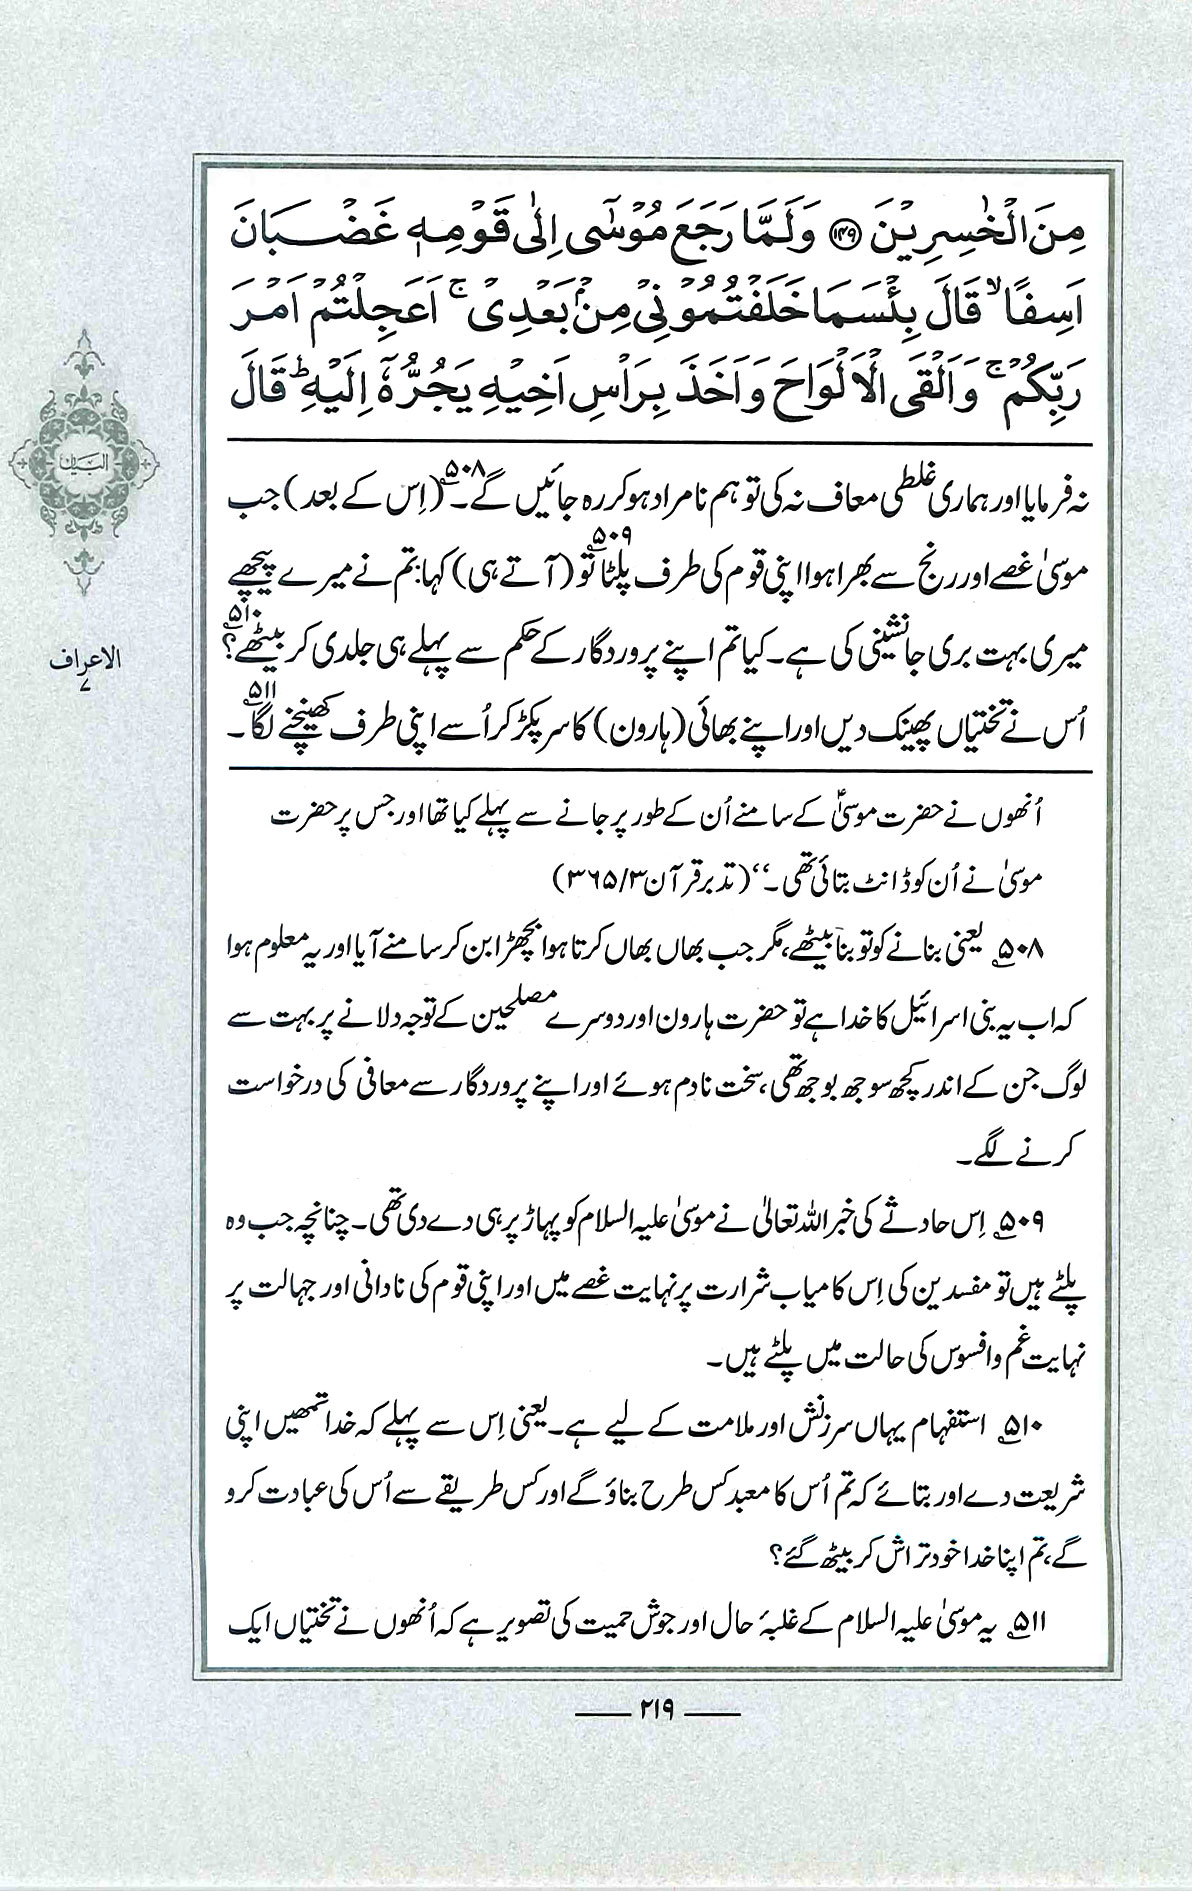 مِنَ الْخٰسِرِيْنَ ﴿۱۴۹﴾ وَلَمَّا رَجَعَ مُوْسٰٓى اِلٰى قَوْمِهٖ غَضْبَانَ
اَسِفًا ۙ قَالَ بِئْسَمَا خَلَفْتُمُوْنِيْ مِنْۢ بَعْدِيْ ۚ اَعَجِلْتُمْ اَمْرَ
رَبِّكُمْ ۚ وَاَلْقَى الْاَلْوَاحَ وَاَخَذَ بِرَاْسِ اَخِيْهِ يَجُرُّهٗٓ اِلَيْهِ ؕ قَالَ
نہ فرمایا اور ہماری غلطی معاف نہ کی تو ہم نامراد ہو کر رہ جائیں گے۔۵۰۸ (اِس کے بعد) جب
موسیٰ غصے اور رنج سے بھرا ہوا اپنی قوم کی طرف پلٹا۵۰۹ تو (آتے ہی) کہا: تم نے میرے پیچھے
میری بہت بری جانشینی کی ہے۔ کیا تم اپنے پروردگار کے حکم سے پہلے ہی جلدی کر بیٹھے؟۵۱۰
اُس نے تختیاں پھینک دیں اور اپنے بھائی (ہارون) کا سر پکڑ کر اُسے اپنی طرف کھینچنے لگا۔۵۱۱
اُنھوں نے حضرت موسیٰؑ کے سامنے اُن کے طور پر جانے سے پہلے کیا تھا اور جس پر حضرت
موسیٰ نے اُن کو ڈانٹ بتائی تھی۔‘‘ (تدبر قرآن ۳/۳۶۵)
۵۰۸ یعنی بنانے کو تو بنا بیٹھے، مگر جب بھاں بھاں کرتا ہوا بچھڑا بن کر سامنے آیا اور یہ معلوم ہوا
کہ اب یہ بنی اسرائیل کا خدا ہے تو حضرت ہارون اور دوسرے مصلحین کے توجہ دلانے پر بہت سے
لوگ جن کے اندر کچھ سوجھ بوجھ تھی، سخت نادم ہوئے اور اپنے پروردگار سے معافی کی درخواست
کرنے لگے۔
۵۰۹ اِس حادثے کی خبر اللہ تعالیٰ نے موسیٰ علیہ السلام کو پہاڑ پر ہی دے دی تھی۔ چنانچہ جب وہ
پلٹے ہیں تو مفسدین کی اِس کامیاب شرارت پر نہایت غصے میں اور اپنی قوم کی نادانی اور جہالت پر
نہایت غم و افسوس کی حالت میں پلٹے ہیں۔
۵۱۰ استفہام یہاں سرزنش اور ملامت کے لیے ہے۔ یعنی اِس سے پہلے کہ خدا تمھیں اپنی
شریعت دے اور بتائے کہ تم اُس کا معبد کس طرح بناؤ گے اور کس طریقے سے اُس کی عبادت کرو
گے، تم اپنا خدا خود تراش کر بیٹھ گئے؟
۵۱۱ یہ موسیٰ علیہ السلام کے غلبۂ حال اور جوش حمیت کی تصویر ہے کہ اُنھوں نے تختیاں ایک
البیان
الاعراف
۷
۲۱۹